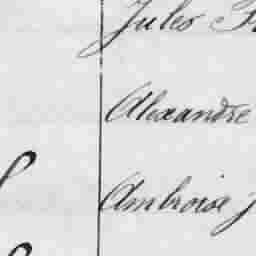 Jules
Alexandre
Ambroise j